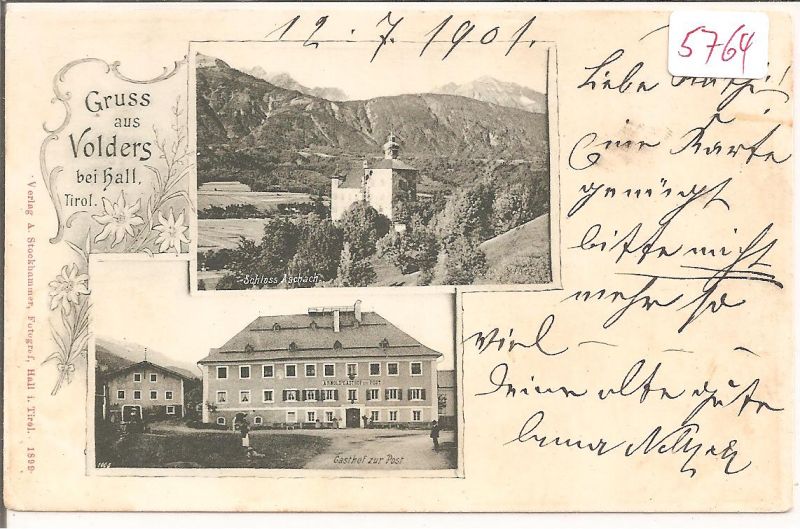 12.7.1901.
5764
Gruss
aus
Volders
bei Hall.
Tirol.
Schloss Aschach
Liebe
eine Karte
genügt
bitte nicht
mehr so
viel —
Deine alte gute
ARNOLD'S GASTHOF ZUR POST
Gasthof zur Post
Verlag A. Stockhammer, Fotograf, Hall i. Tirol. 1899.